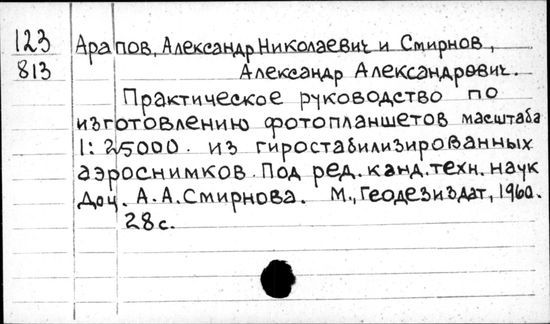 123 Арапов, Александр Николаевич и Смирнов,
813 Александр Александрович.
Практическое руководство по
изготовлению фотопланшетов масштаба
1:25000. из гиростабилизированных
аэроснимков. Под ред. канд. техн. наук
Доц. А.А.Смирнова. М., Геодезиздат, 1960.
28 с.